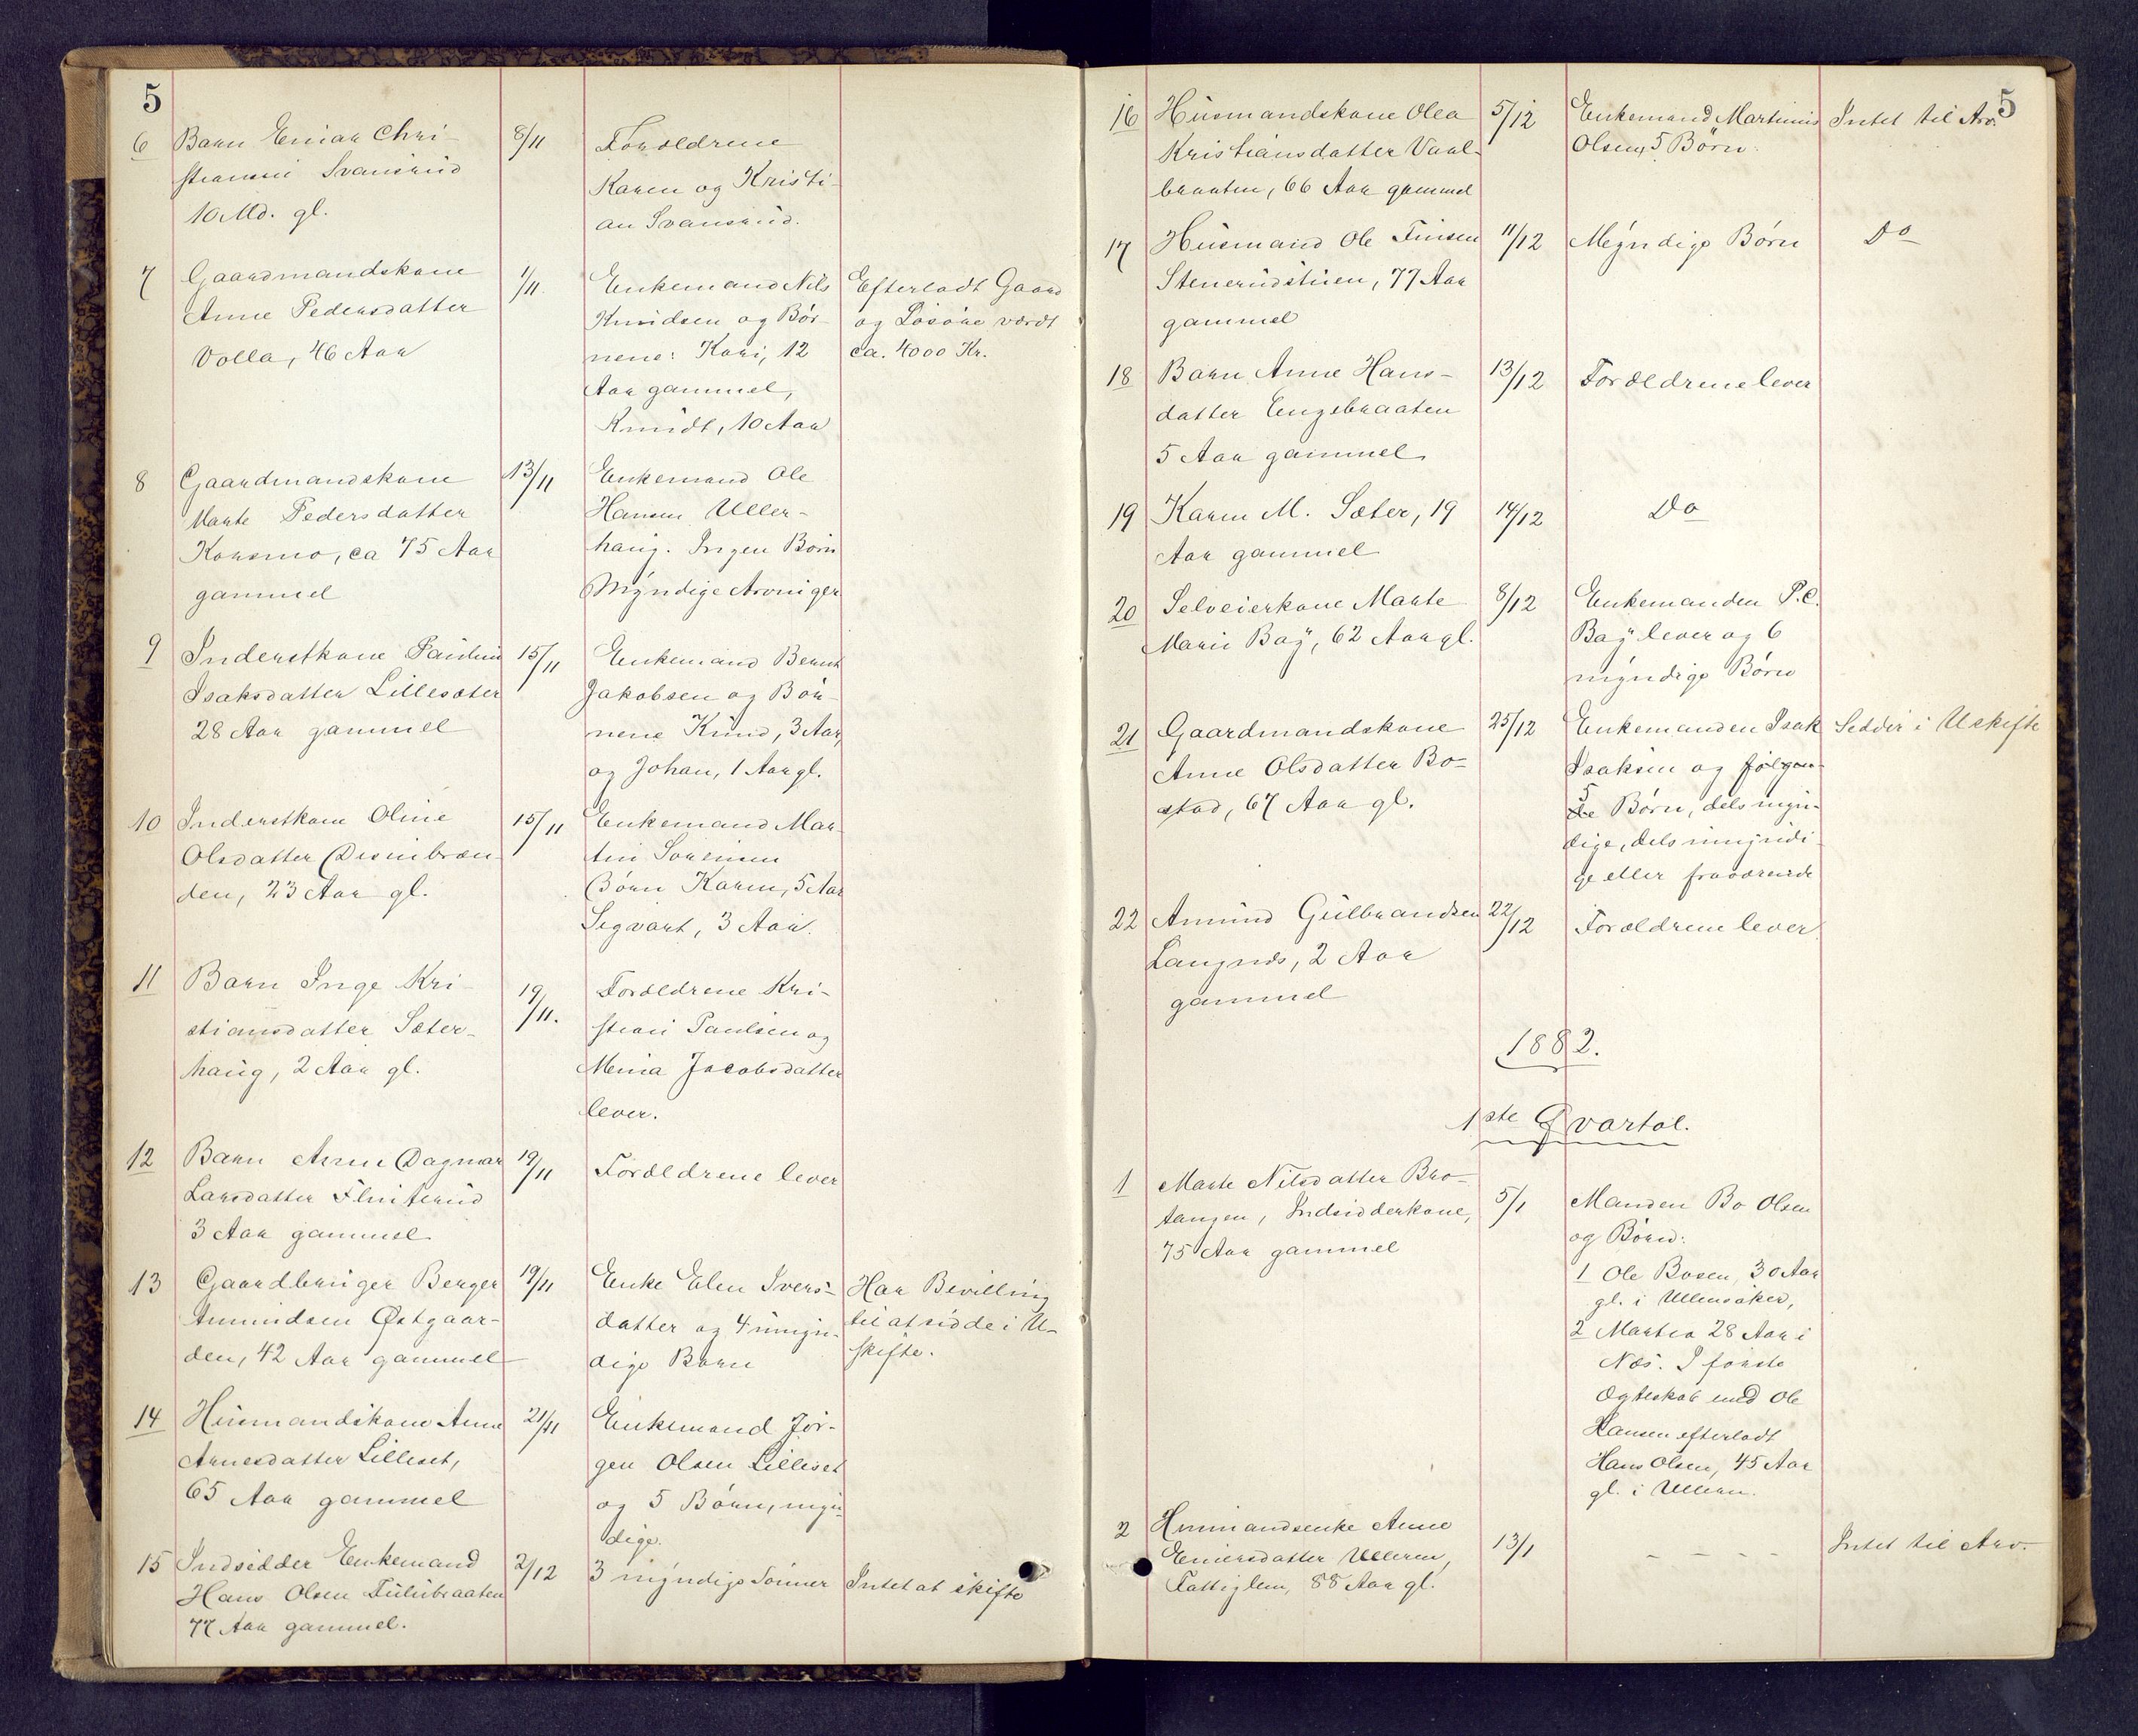 5
6 Barn Einar Chri-
stiansen Svansrud
10 Md. gl.
8/11
Forældrene
Karen og Kristi-
an Svansrud.
7 Gaardmandskone
Anne Pedersdatter
Volla, 46 Aar
1/11.
Enkemand Nils
Knudsen og Bør-
nene: Kari, 12
Aar gammel,
Knudt, 10 Aar
Efterladt Gaard
og Løsøre værdt
ca. 4000 Kr.
8 Gaardmandskone
Marte Pedersdatter
Korsmo, ca 75 Aar
gammel
13/11
Enkemand Ole
Hansen Uller-
haug. Ingen Børn
Myndige Arvinger
9 Inderstkone Pauline
Isaksdatter Lillesæter
28 Aar gammel
15/11
Enkemand Bernt
Jakobsen og Bør-
nene Knud, 3 Aar,
og Johan, 1 Aar gl.
10 Inderstkone Oline
Olsdatter
den, 23 Aar gl.
15/11
Enkemand Mar-
tin Sørensen
Børn Karen, 5 Aar
Segvart, 3 Aar.
11 Barn Inge Kri-
stiansdatter Sæter-
haug, 2 Aar gl.
19/11.
Forældrene Kri-
stian Paulsen og
Menia Jacobsdatter
lever.
12 Barn Anne Dagmar
Larsdatter Flinterud
3 Aar gammel
19/11
Forældrene lever
13 Gaardbruger Berger
Amundsen Østgaar-
den, 42 Aar gammel
19/11
Enke Elen Ivers-
datter og 4 umyn-
dige Børn
Har Bevilling
til at sidde i U-
skifte.
14 Husmandskone Anne
Arnesdatter Lilleset,
65 Aar gammel
21/11
Enkemand Jør-
gen Olsen Lilleset
og 5 Børn, myn-
dige.
15 Indsidder Enkemand
Hans Olsen Fulubraaten
77 Aar gammel.
2/12
3 myndige Sønner
Intet at skifte
5
16 Husmandskone Olea
Kristiansdatter Vaal-
braaten, 66 Aar gammel
5/12
Enkemand Martinus
Olsen, 5 Børn.
Intet til Arv.
17 Husmand Ole Finsen
Stenerudstuen, 77 Aar
gammel
11/12
Myndige Børn
Do
18 Barn Anne Hans-
datter Engebraaten
5 Aar gammel
13/12
Forældrene lever
19 Karen M. Sæter, 19
Aar gammel
14/12
Do
20 Selveierkone Marte
Marie Bay, 62 Aar gl.
8/12
Enkemanden P.C.
Bay lever og 6
myndige Børn
21 Gaardmandskone
Anne Olsdatter Bo-
stad, 67 Aar gl.
25/12
Enkemanden Isak
Isaksen og følgen-
de 5 Børn, dels myn-
dige, dels umyndi-
ge eller fraværende
Sidder i Uskifte
22 Amund Gulbrandsen
Langnes, 2 Aar
gammel
22/12
Forældrene lever
1882.
1ste Qvartal.
1 Marte Nilsdatter Bro-
tangen, Indsidderkone,
75 Aar gammel
5/1
Manden Bo Olsen
og Børn:
1 Ole Bosen, 30 Aar
gl. i Ullensaker,
2 Martea 28 Aar i
Næs. I første
Ægteskab med Ole
Hansen efterladt
Hans Olsen, 45 Aar
gl. i Ulleren.
2 Husmandsenke Anne
Einersdatter Ulleren,
Fattiglem, 88 Aar gl.
13/1
- - - -
Intet til Arv.